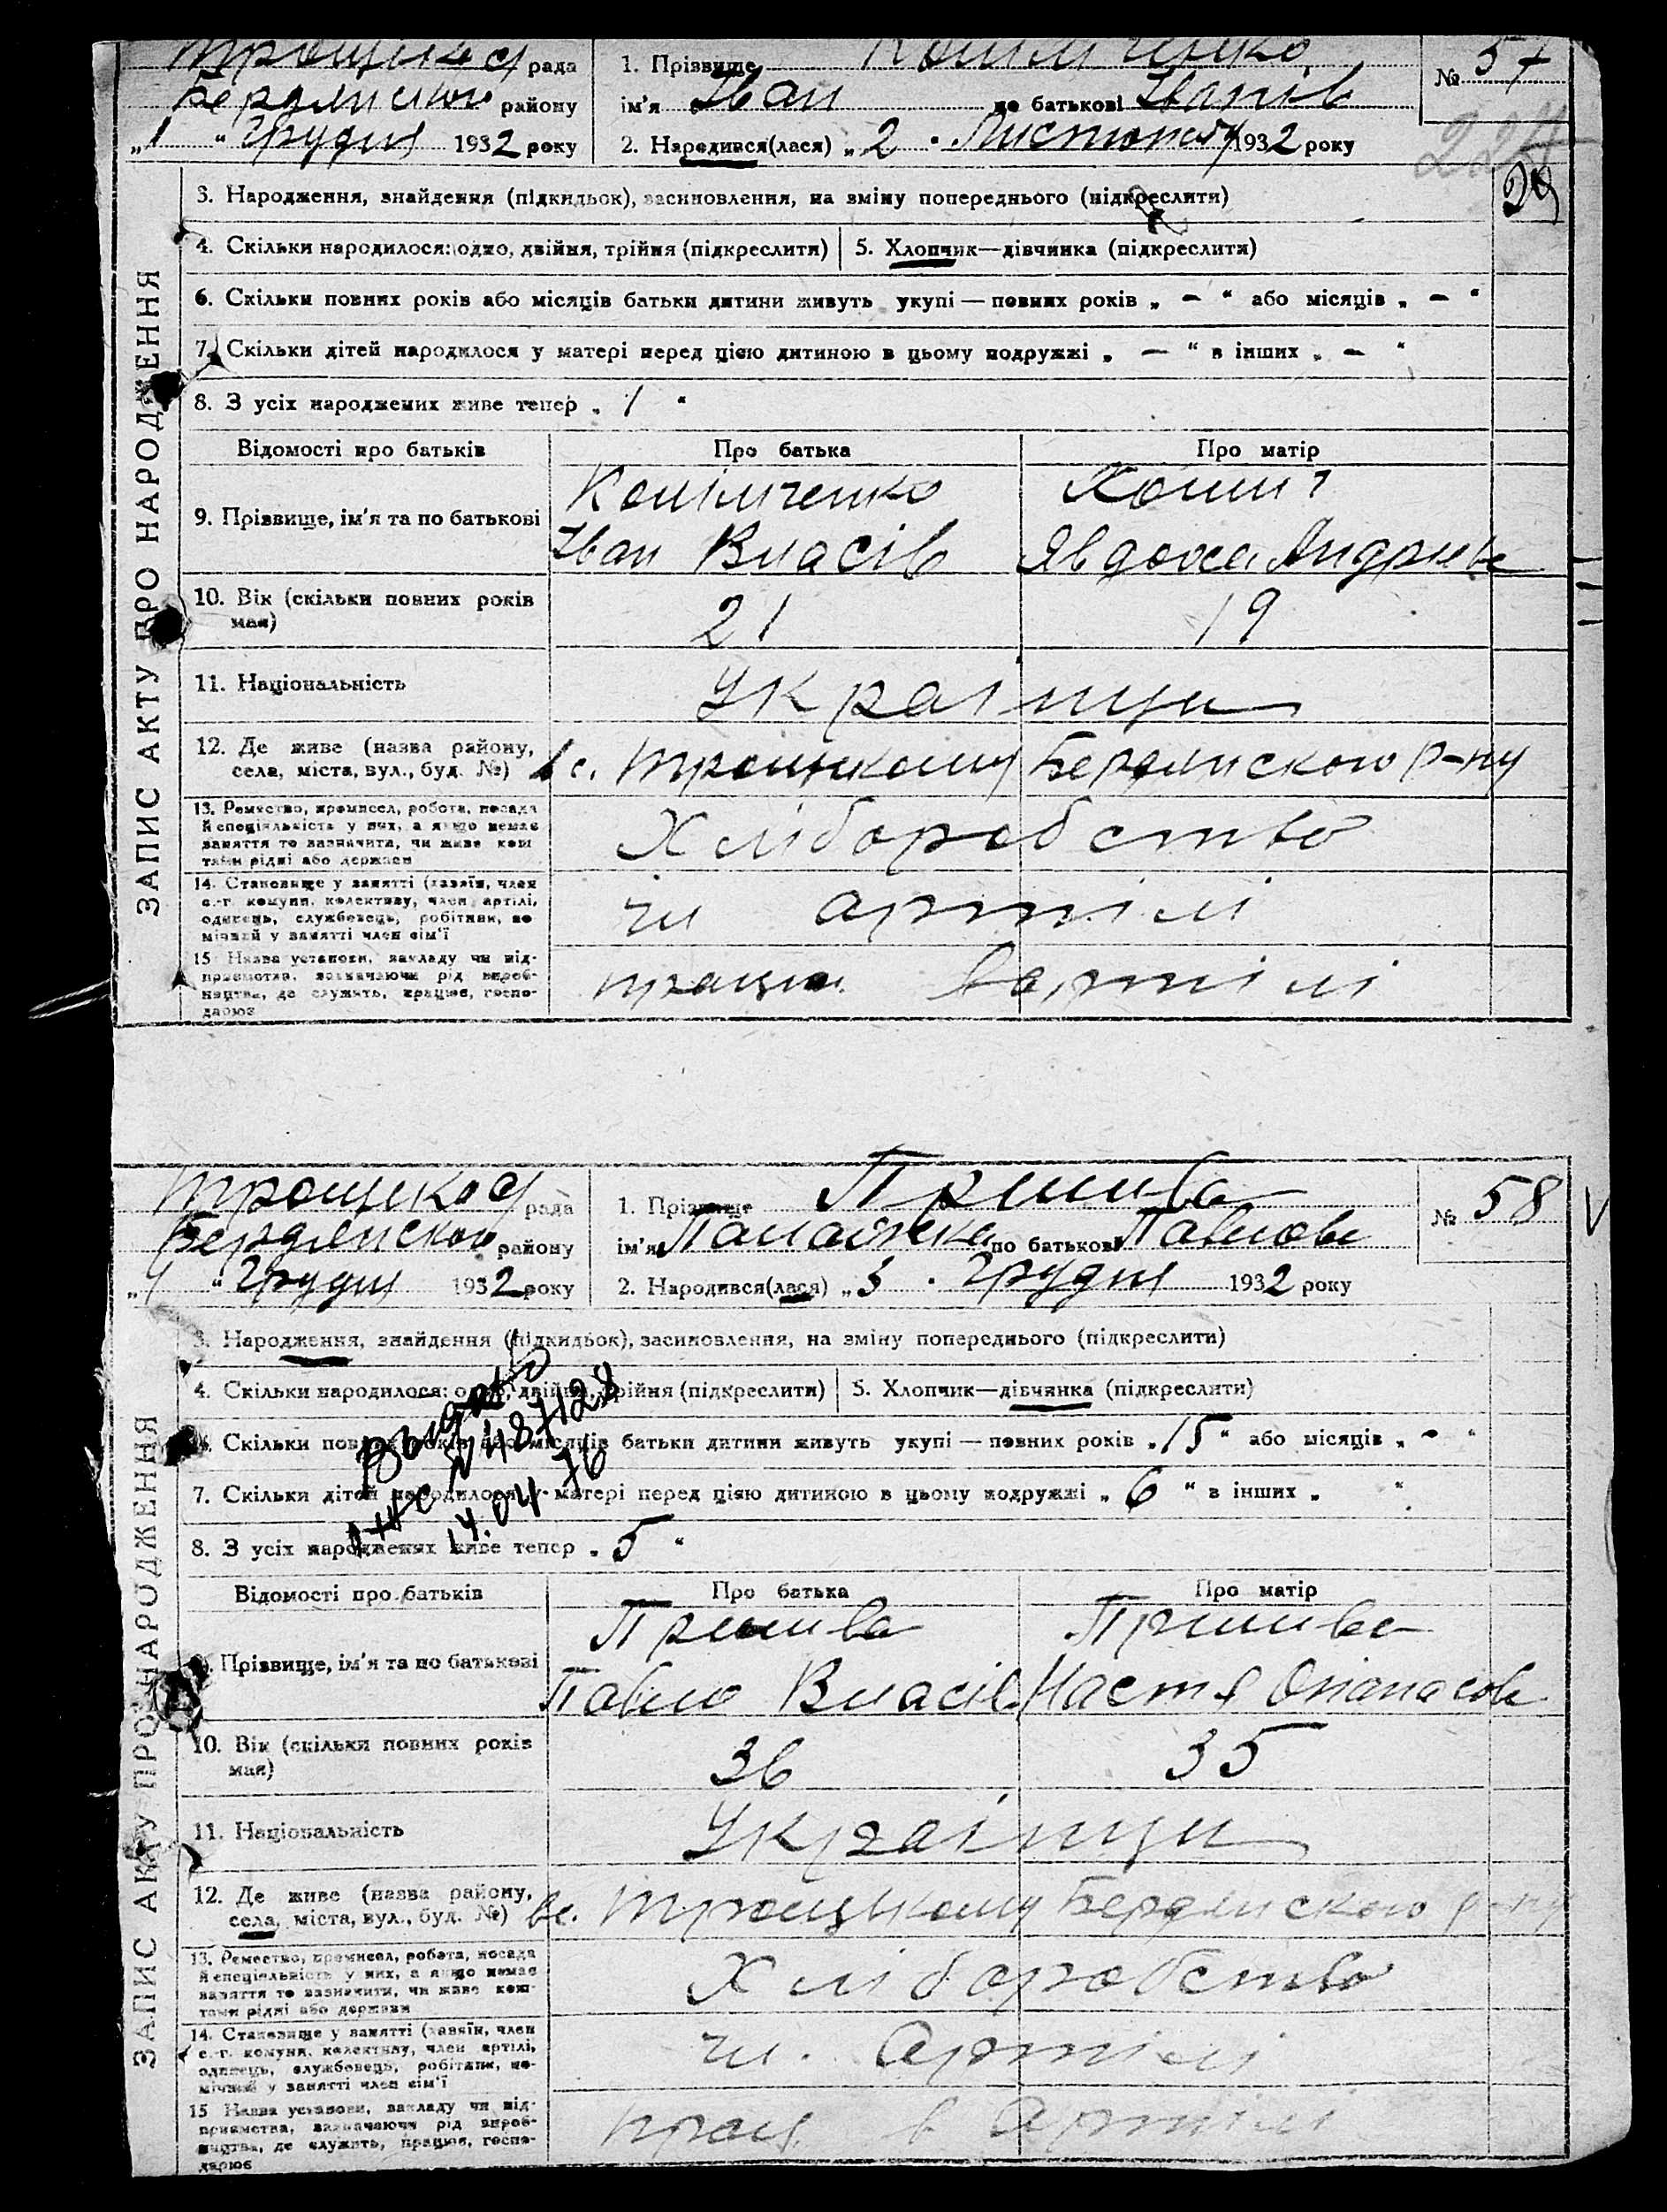 Троцька с/рада
1. Прізвище
№ 57
Бердянського району
ім'я Іван по батькові Іванів
„1 " Грудня 1932 року
2. Народився(лася) „2 " Листопаду 1932 року
29
3. Народження, знайдення (підкидьок), засиновлення, на зміну попереднього (підкреслити)
4. Скільки народилося: одно, двійня, трійня (підкреслити)
5. Хлопчик—дівчинка (підкреслити)
6. Скільки повних років або місяців батьки дитини живуть укупі — повних років „ — " або місяців „ — "
7. Скільки дітей народилося у матері перед цією дитиною в цьому подружжі „ — " в інших „ — "
8. З усіх народжених живе тепер „ 1 "
Відомості про батьків
Про батька
Про матір
9. Прізвище, ім'я та по батькові
Іван Власів
Явдоха
10. Вік (скільки повних років має)
21
19
11. Національність
Украінци
12. Де живе (назва району,
села, міста, вул., буд. №)
в с. Троцькому Бердянского р-ну
13. Ремество, промисел, робота, посада
й спеціяльність у них, а якщо немає
заняття то зазначити, чи живе кош
тами рідні або держави
Хліборобство
14. Становище у занятті (хазяїн, член
с.-г. комуни, колективу, член артілі,
одинець, службовець, робітник, по
мічний у занятті член сім'ї
чл артілі
15 Назва установи, закладу чи під-
приємства, зазначаючи рід вироб-
ництва, де служить, працює, госпо-
дарює
працю. в артілі
ЗАПИС АКТУ ПРО НАРОДЖЕННЯ
Троцька с/рада
1. Прізвище
№ 58
Бердянского району
ім'я Палажка по батькові Павлова
" Грудня 1932 року
2. Народився(лася) „3 " Грудня 1932 року
3. Народження, знайдення (підкидьок), засиновлення, на зміну попереднього (підкреслити)
4. Скільки народилося: одно, двійня, трійня (підкреслити)
5. Хлопчик—дівчинка (підкреслити)
6. Скільки повних років або місяців батьки дитини живуть укупі — повних років „ 15 " або місяців „ - "
7. Скільки дітей народилося у матері перед цією дитиною в цьому подружжі „ 6 " в інших „ "
8. З усіх народжених живе тепер „ 5 "
Видано
N 487128
14.04 76
Відомості про батьків
Про батька
Про матір
9. Прізвище, ім'я та по батькові
Павло Власів
Настя Опанасова
10. Вік (скільки повних років має)
36
35
11. Національність
Украінци
12. Де живе (назва району,
села, міста, вул., буд. №)
в с. Троцькому Бердянского р-ну
13. Ремество, промисел, робота, посада
й спеціяльність у них, а якщо немає
заняття то зазначити, чи живе кош-
тами рідні або держави
Хліборобство
14. Становище у занятті (хазяїн, член
с.-г. комуни, колективу, член артілі,
одинець, службовець, робітник, по-
мічний у занятті член сім'ї
чл. артілі
15 Назва установи, закладу чи під-
приємства, зазначаючи рід вироб-
ництва, де служить, працює, госпо-
дарює
прац. в артілі
ЗАПИС АКТУ ПРО НАРОДЖЕННЯ